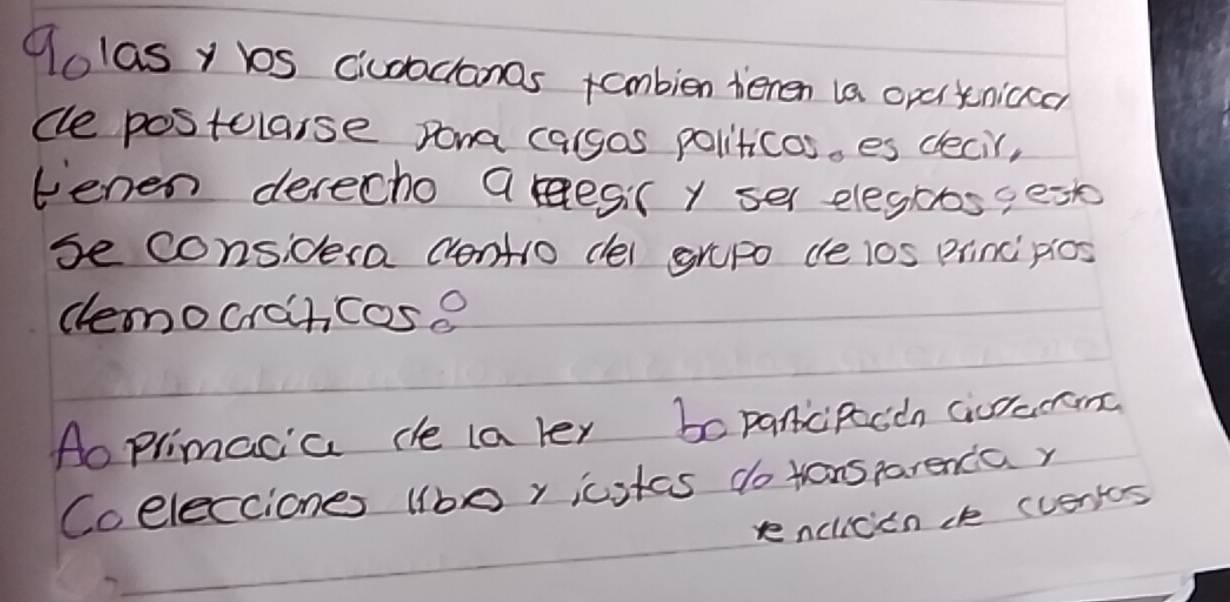 9. las y los ciudadanas tambien tienen la opertunidad
de postularse para cargos politicos. es decir,
tienen derecho a elegir y ser elegidos, esto
se considera dentro del grupo de los principios
democráticos:
A. primacia de la ley b. participación ciudadana
C. elecciones libres y justas d. transparencia y
rendición de cuentas